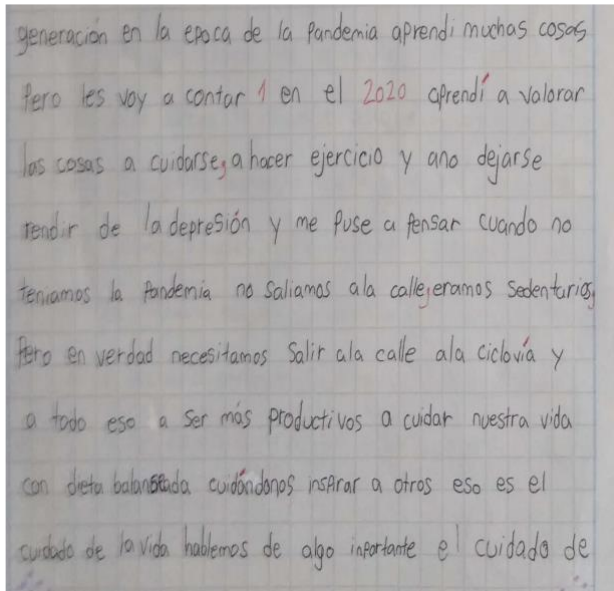 generación en la epoca de la Pandemia aprendi muchas cosas
Pero les voy a contar 1 en el 2020 aprendí a valorar
las cosas a cuidarse, a hacer ejercicio y ano dejarse
rendir de la depresión y me Puse a Pensar cuando no
teniamos la Pandemia no Saliamos ala calle, eramos Sedentarios,
Pero en verdad necesitamos Salir ala calle ala ciclovía y
a todo eso a ser más Productivos a cuidar nuestra vida
con dieta balanseada cuidándonos insPirar a otros eso es el
cuidado de la vida hablemos de algo inportante el cuidado de